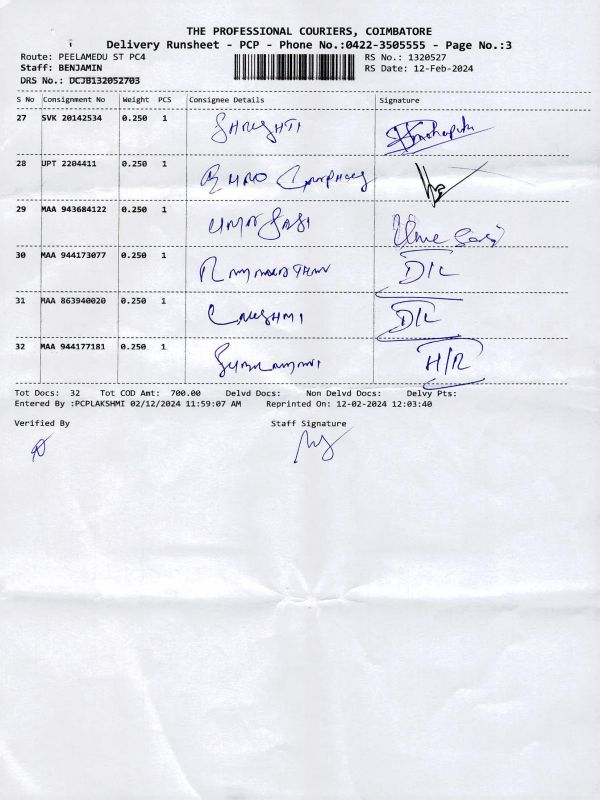 THE PROFESSIONAL COURIERS, COIMBATORE
Delivery Runsheet - PCP - Phone No.:0422-3505555 - Page No.:3
Route: PEELAMEDU ST PC4 RS No.: 1320527
Staff: BENJAMIN RS Date: 12-Feb-2024
DRS No.: DCJB132052703
S No Consignment No Weight PCS Consignee Details Signature
27 SVK 20142534 0.250 1
28 UPT 2204411 0.250 1
29 MAA 943684122 0.250 1 UMA SASI Uma Sasi
30 MAA 944173077 0.250 1 D/L
31 MAA 863940020 0.250 1 D/L
32 MAA 944177181 0.250 1 H/R
Tot Docs: 32 Tot COD Amt: 700.00 Delvd Docs: Non Delvd Docs: Delvy Pts:
Entered By :PCPLAKSHMI 02/12/2024 11:59:07 AM Reprinted On: 12-02-2024 12:03:40
Verified By Staff Signature